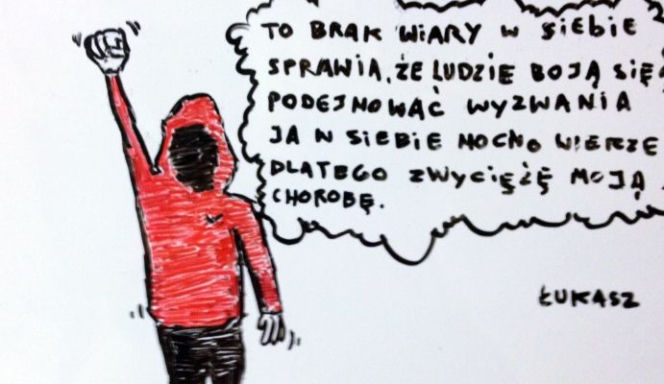 TO BRAK WIARY W SIEBIE
SPRAWIA, ŻE LUDZIE BOJĄ SIĘ
PODEJMOWAĆ WYZWANIA
JA W SIEBIE MOCNO WIERZE
DLATEGO ZWYCIĘŻĘ MOJĄ
CHOROBĘ.
ŁUKASZ